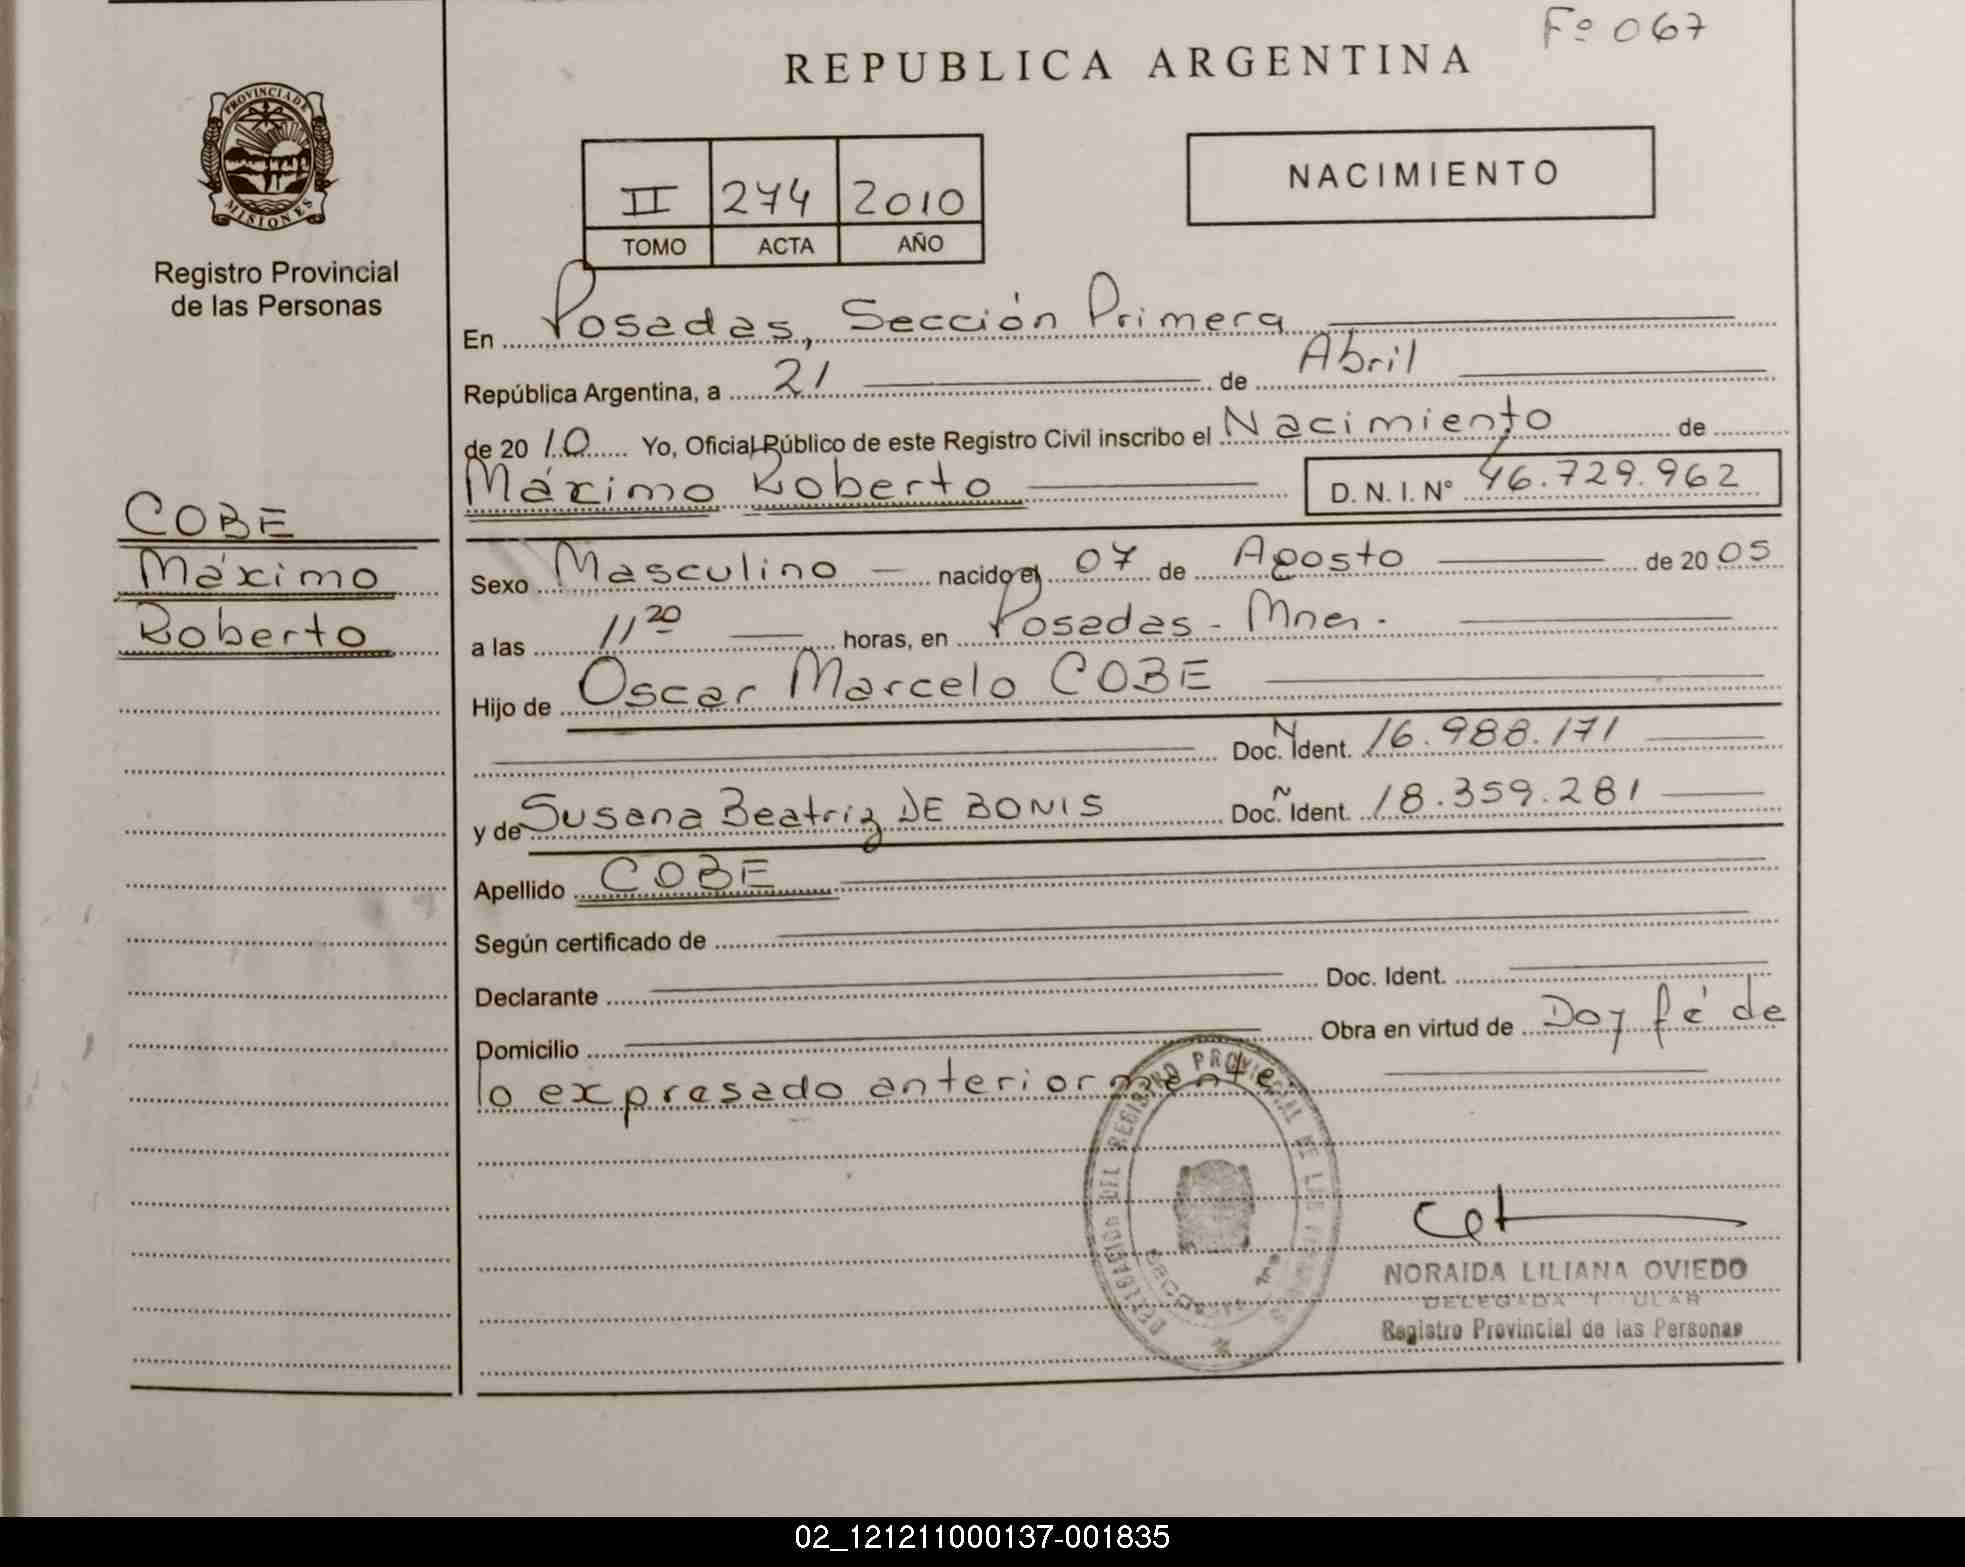 Fº 067
REPUBLICA ARGENTINA
PROVINCIA DE
MISIONES
Registro Provincial
de las Personas
II 274 2010
TOMO ACTA AÑO
NACIMIENTO
En Posadas, Sección Primera
República Argentina, a 21 de Abril
de 20 10 Yo, Oficial Público de este Registro Civil inscribo el Nacimiento de
Máximo Roberto D. N. I. Nº 46.729.962
COBE
Máximo
Roberto
Sexo Masculino nacido el 07 de Agosto de 20 05
a las 11 20 horas, en Posadas - Mnes.
Hijo de Oscar Marcelo COBE
Doc. N Ident. 16.988.171
y de Susana Beatriz DE BONIS Doc. N Ident. 18.359.281
Apellido COBE
Según certificado de
Declarante Doc. Ident.
Domicilio Obra en virtud de Doy fé de
lo expresado anteriormente
DELEGACION DEL REGISTRO PROVINCIAL DE LAS
NORAIDA LILIANA OVIEDO
DELEGADA TITULAR
Registro Provincial de las Personas
02_121211000137-001835